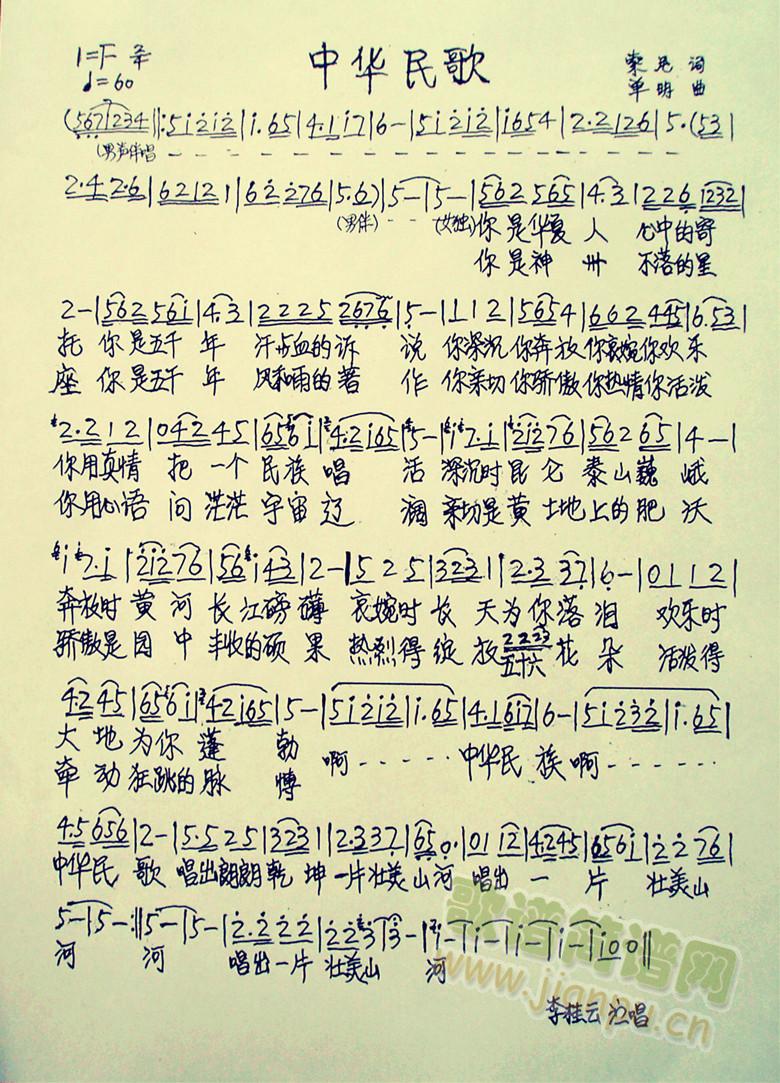 中华民歌
1=F 2/4
♩=60
词
单明 曲
(567 1234‖:5 1 2 1 2|1. 65|4. 1 1 7|6 -|5 1 2 1 2|1 6 5 4|2. 2 1 2 6|5. (53|
(男声伴唱
2. 4 2. 6|6 2 1 2 1|6 2 2 7 6|5. 6)|5 -|5 -|562 565|4. 3|226 1232|
(男伴) (女独) 你是华夏 人 心中的寄
你是神 州 不落的星
2 -|562 561|4. 3|2225 2676|5 -|1 1 2|565 4|662 445|6. 53|
托 你是五千 年 汗与血的诉 说 你深沉你奔放你哀婉你欢乐
座 你是五千 年 风和雨的著 作 你亲切你骄傲你热情你活泼
2. 2 1 2|042 45|656 1|4. 2 165|5 -|1 7. 1|212 76|562 65|4 -|
你用真情 把 一个 民族 唱 活 深沉时昆仑 泰山巍 峨
你用心语 问 茫茫 宇宙 辽 阔 亲切是黄 土地上的肥 沃
1 7. 1|212 76|56 1 43|2 -|5 2 5|323|2. 3 37|6 -|0 1 1 2|
奔放时 黄 河 长 江磅 礴 哀婉时 长 天为你落 泪 欢乐时
骄傲是 园 中 丰收的硕 果 热烈得绽 放 五十六 花 朵 活泼得
2 2 2 3
42 45|656 1|42 165|5 -|5 1 2 1 2|1. 65|4. 1 6 1 7|6 -|5 1 2 3 2|1. 65|
大 地 为你 蓬 勃 啊 - - - - - 中华民 族 啊 - - - - -
牵 动 狂跳的脉 搏
4. 5 656|2 -|5. 5 2 5|323 1|2. 3 3 7|65 0.|0 1 12|4. 2 45|656 1|2 2 76|
中华民 歌 唱出朗朗乾 坤 一片壮美山河 唱出 一 片 壮美山
5 -|5 -:‖5 -|5 -|2. 2 2 2|2 2 3|3 -|1 -|1 -|1 -|1 -|1 0 0‖
河 河 唱出一片 壮美山 河
李桂云 演唱
歌谱简谱网
www.jianpu.cn